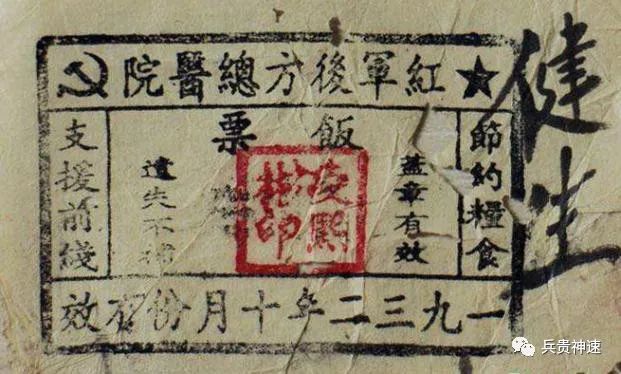 紅軍後方總醫院
節約糧食
飯票
蓋章有效
遺失不補
支援前綫
一九三二年十月份有效
健生
兵贵神速